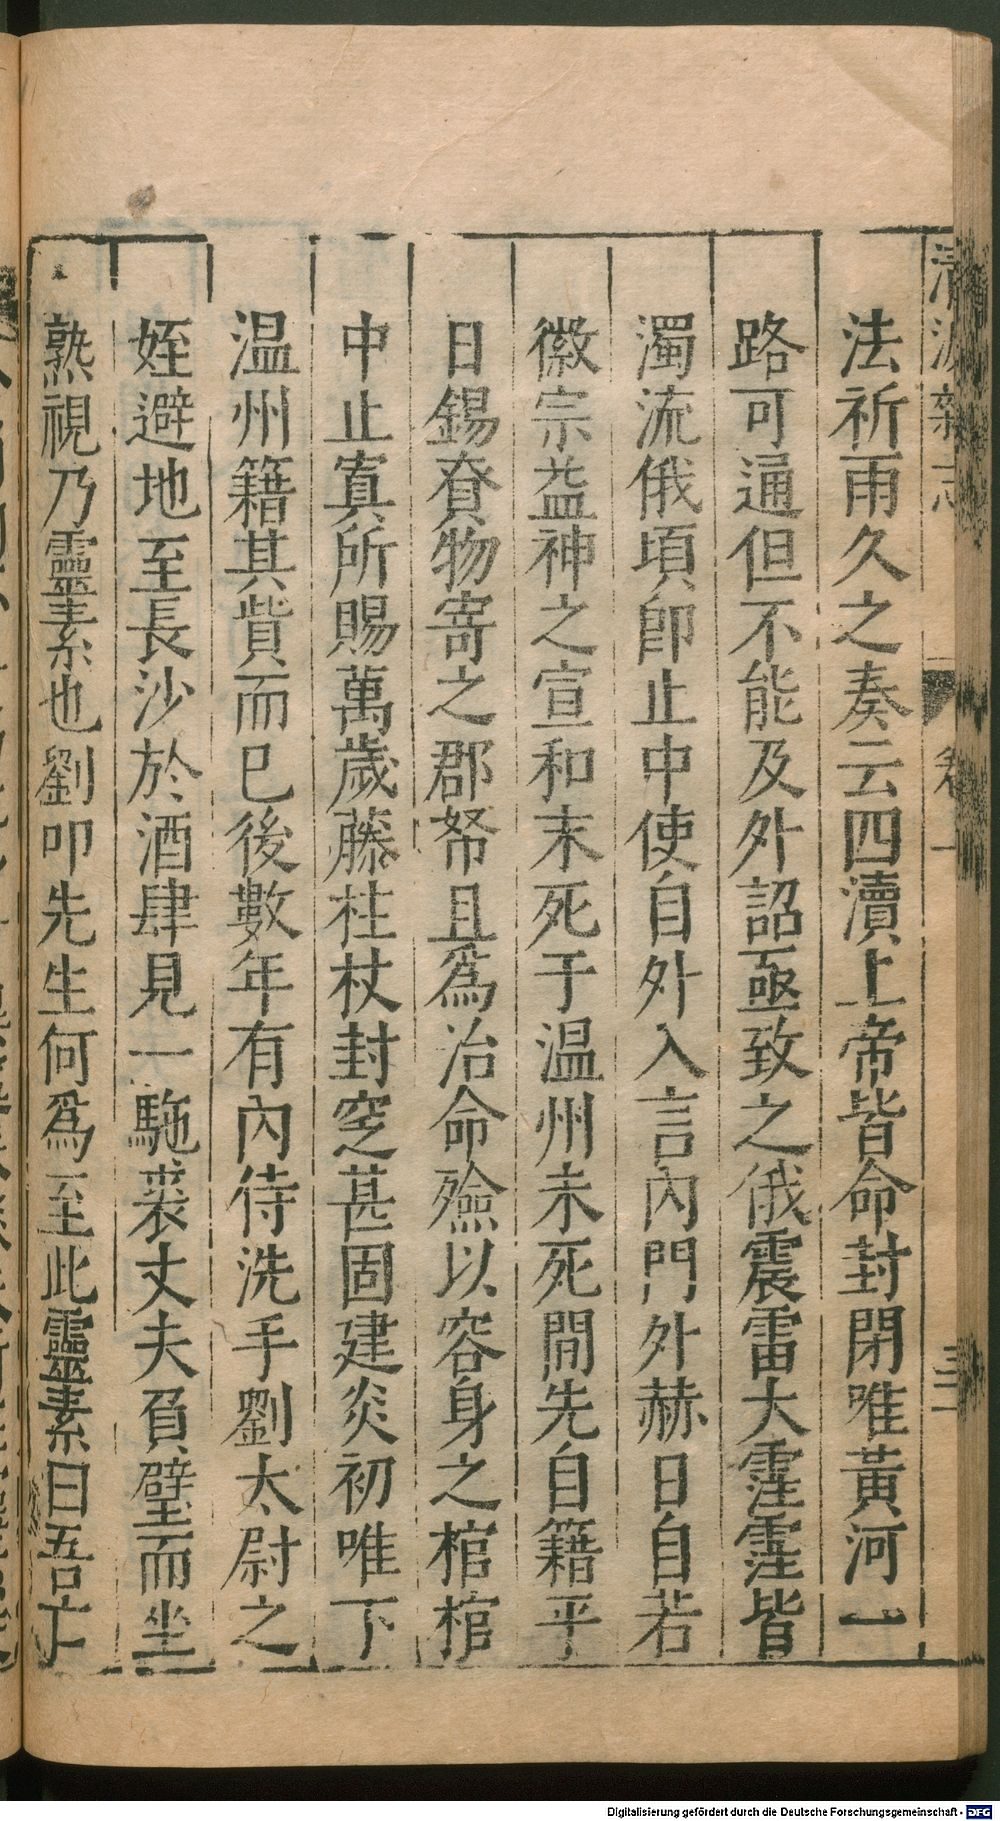 法祈雨久之奏云四瀆上帝皆命封閉唯黃河一
路可通但不能及外詔亟致之俄震雷大霔霔皆
濁流俄頃卽止中使自外入言內門外赫日自若
徽宗益神之宣和末死于温州未死閒先自籍平
日錫賚物寄之郡帑且爲治命殮以容身之棺棺
中止寘所賜萬歲藤柱杖封窆甚固建炎初唯下
温州籍其貲而已後數年有內侍洗手劉太尉之
姪避地至長沙於酒肆見一駞裘丈夫負壁而坐
熟視乃靈素也劉叩先生何爲至此靈素曰吾亡
Digitalisierung gefördert durch die Deutsche Forschungsgemeinschaft - DFG